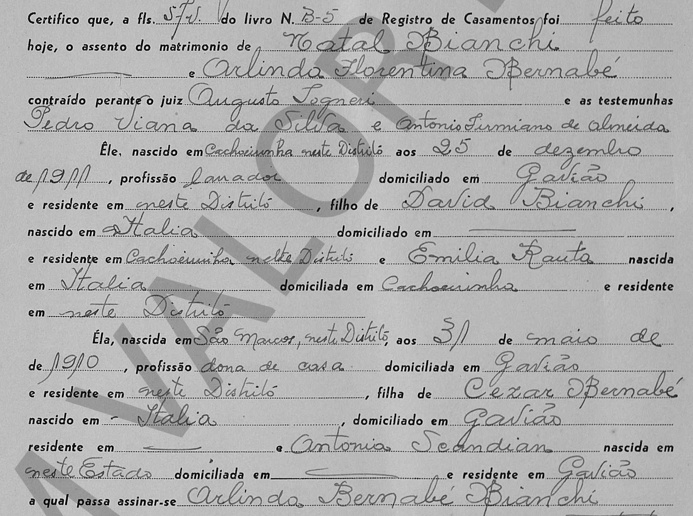 Certifico que, a fls. 57v. do livro N. B-5 de Registro de Casamentos foi feito
hoje, o assento do matrimonio de Natal Bianchi
e Arlinda Florentina Bernabé
contraído perante o juiz Augusto Togneri e as testemunhas
Pedro Viana da Silva e Antonio Firmiano de Almeida
Êle, nascido em Cachoeirinha neste Distritó aos 25 de dezembro
de 1911, profissão lavrador domiciliado em Gavião
e residente em neste Distritó, filho de David Bianchi,
nascido em Italia domiciliado em
e residente em Cachoeirinha neste Distritó e Emilia Rauta nascida
em Italia domiciliada em Cachoeirinha e residente
em neste Distritó
Éla, nascida em São Marcos, neste Distritó, aos 31 de maio de
de 1910, profissão dona de casa domiciliada em Gavião
e residente em neste Distritó, filha de Cezar Bernabé
nascido em - Italia, domiciliado em Gavião
residente em e Antonia Scandian nascida em
neste Estado domiciliada em e residente em Gavião
a qual passa assinar-se Arlinda Bernabé Bianchi
M VALOR